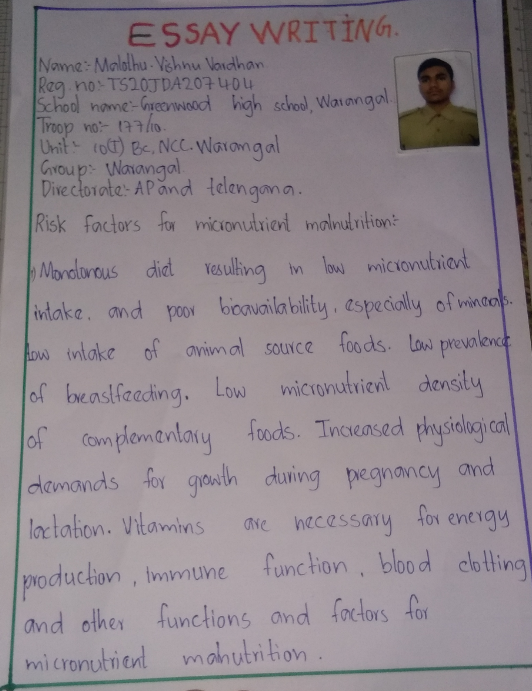 ESSAY WRITING.
Name:- Malothu. Vishnu Vardhan
Reg. no:- TS20JDA207404
School name:- Greenwood high school, Warangal.
Troop no:- 177/10.
Unit:- 10(T) Bc, NCC. Warangal
Group:- Warangal
Directorate:- AP and telengana.
Risk factors for micronutrient malnutrition:-
1) Monotonous diet resulting in low micronutrient
intake, and poor bioavailability, especially of minerals.
Low intake of animal source foods. Low prevalence
of breastfeeding. Low micronutrient density
of complementary foods. Increased physiological
demands for growth during pregnancy and
lactation. Vitamins are necessary for energy
production, immune function, blood clotting
and other functions and factors for
micronutrient malnutrition.